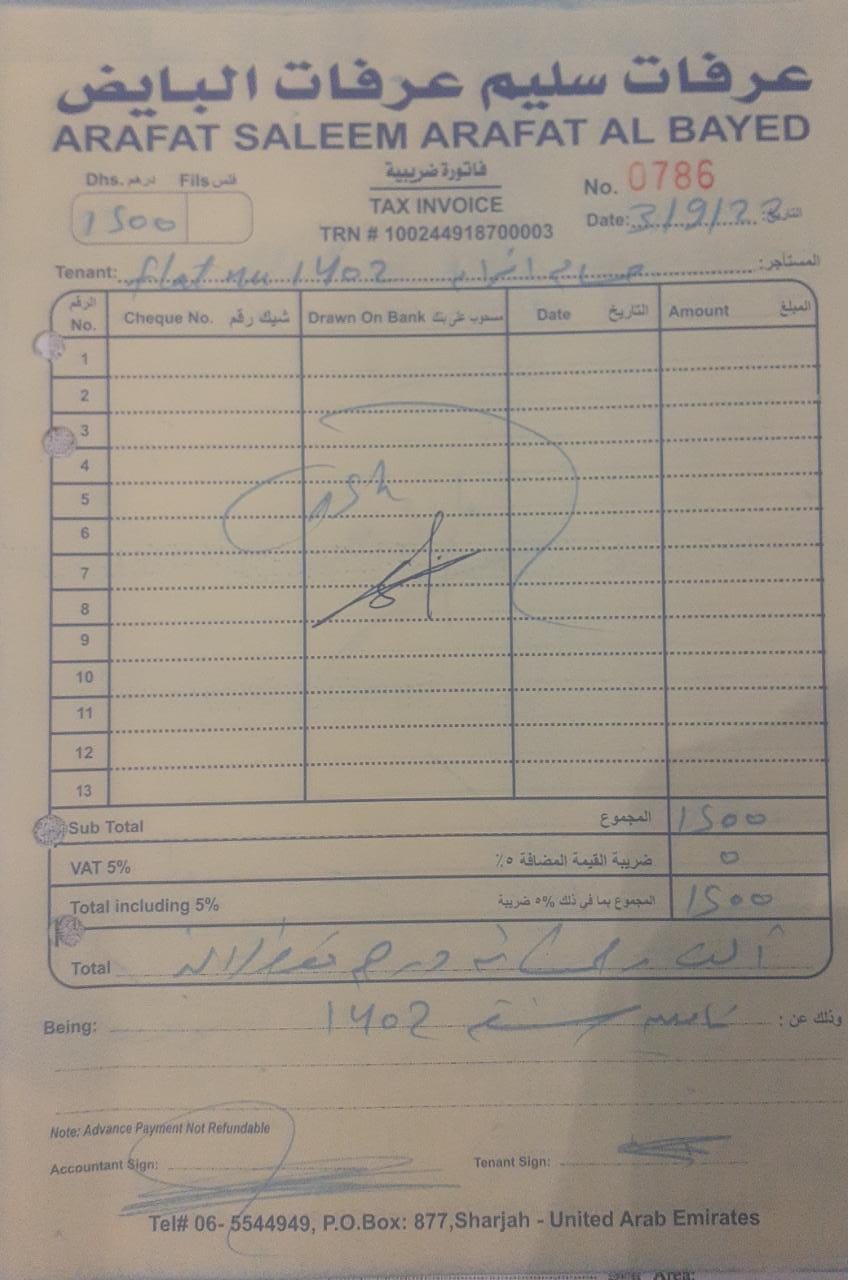 عرفات سليم عرفات البايض
ARAFAT SALEEM ARAFAT AL BAYED
Dhs. درهم Fils فلس
1500
فاتورة ضريبية
TAX INVOICE
TRN # 100244918700003
No. 0786
Date: 3/9/22 التاريخ:
Tenant: flat nu 1402 المستأجر:
الرقم No. Cheque No. شيك رقم Drawn On Bank مسحوب على بنك Date التاريخ Amount المبلغ
1
2
3
4
5
6
7
8
9
10
11
12
13
Cash
Sub Total المجموع 1500
VAT 5% ضريبة القيمة المضافة ٥٪ 0
Total including 5% المجموع بما في ذلك ٥% ضريبة 1500
Total ألف وخمسمائة درهم فقط لا غير
Being: تأمين 1402 وذلك عن:
Note: Advance Payment Not Refundable
Accountant Sign: Tenant Sign:
Tel# 06- 5544949, P.O.Box: 877,Sharjah - United Arab Emirates
Area: